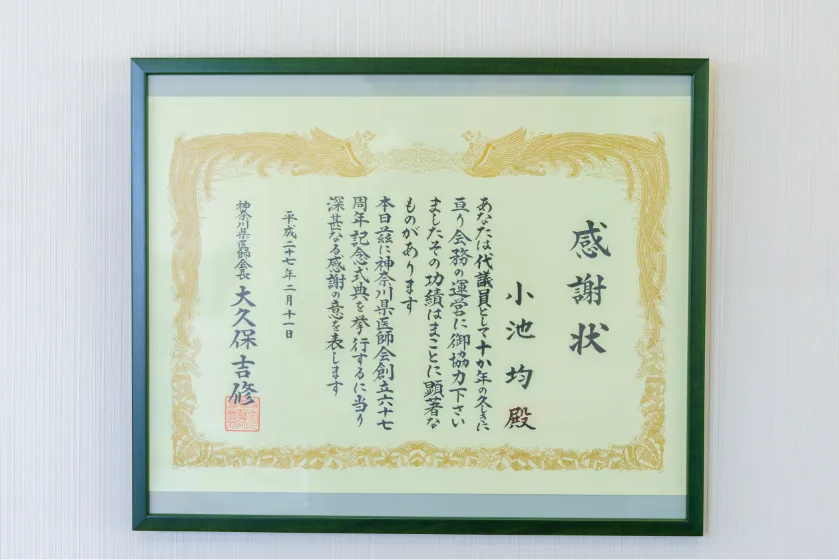 感謝状
小池均殿
あなたは代議員として十か年の久しきに
亘り会務の運営に御協力下さい
ましたその功績はまことに顕著な
ものがあります
本日茲に神奈川県医師会創立六十七
周年記念式典を挙行するに当り
深甚なる感謝の意を表します
平成二十七年二月十一日
神奈川県医師会長 大久保吉修